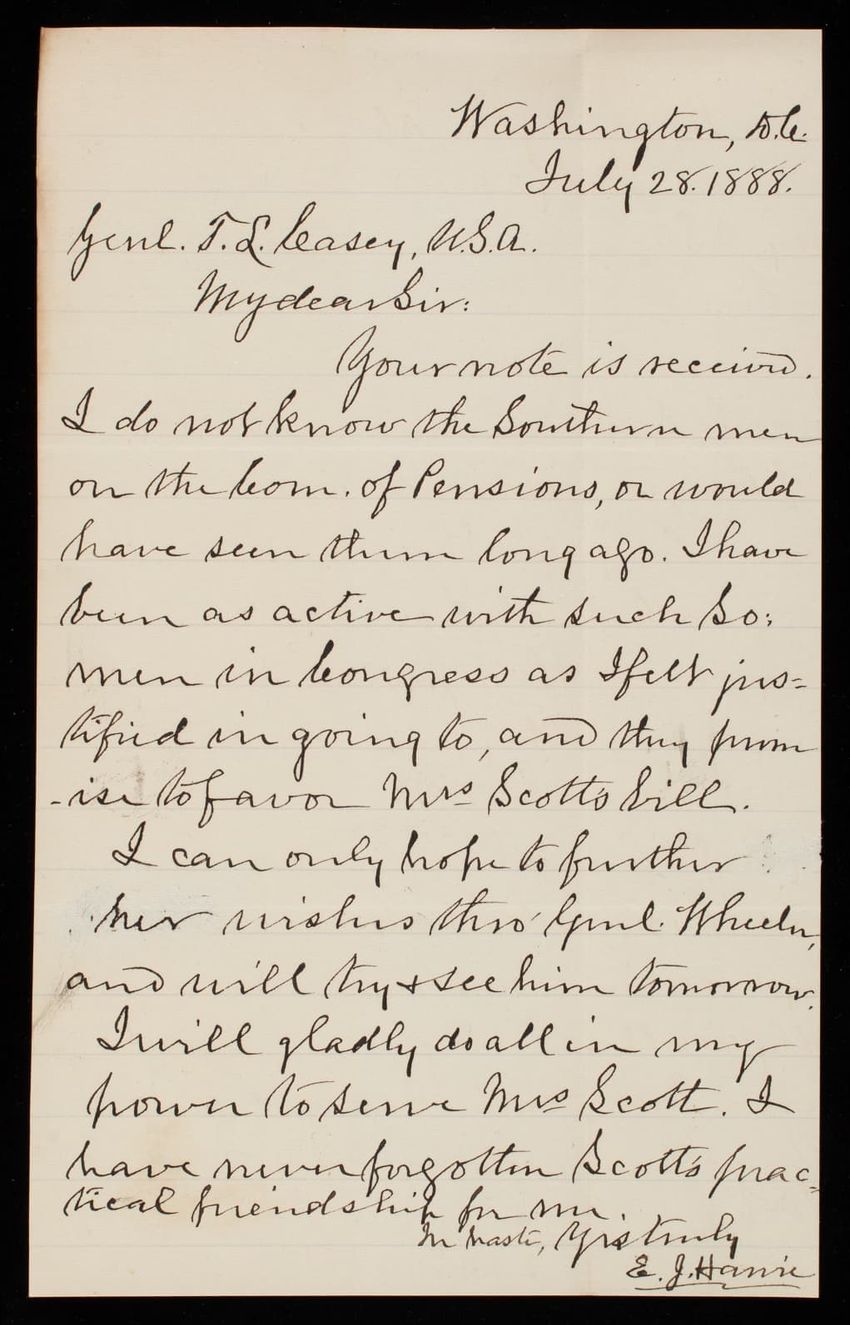 Washington, D.C.
July 28. 1888.
Genl. T. L. Casey, U.S.A.
My dear Sir:
Your note is received.
I do not know the Southern men
on the Com. of Pensions, or would
have seen them long ago. I have
been as active with such So:
men in Congress as I felt jus=
tified in going to, and they prom
-ise to favor Mrs Scott's bill.
I can only hope to further
her wishes thro' Genl. Wheeler,
and will try & see him tomorrow.
I will gladly do all in my
power to serve Mrs Scott. I
have never forgotten Scott's prac=
tical friendship for me.
In haste, Yrs truly
E. J.